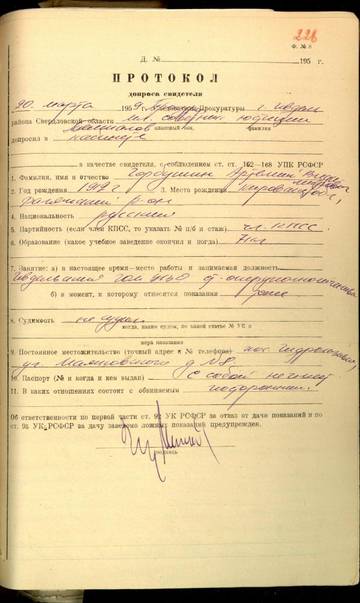 226
Ф. № 8
Д. № 195 г.
ПРОТОКОЛ
допроса свидетеля
20. марта 1959. Прокуратуры г. Ивдель
района Свердловской области мл. советник юстиции
классный чин, фамилия
допросил в кабинете
в качестве свидетеля, с соблюдением ст. ст. 162—168 УПК РСФСР
1. Фамилия, имя и отчество Горбушин Артемий
2. Год рождения 1919 г 3. Место рождения Кировская обл,
р-он
4. Национальность русский
5. Партийность (если член КПСС, то указать № п/б и стаж) чл. КПСС.
6. Образование (какое учебное заведение окончил и когда) 7 кл
7. Занятие: а) в настоящее время—место работы и занимаемая должность
б) в момент, к которому относятся показания
8. Судимость не судим
когда, каким судом, по какой статье № УК и
мера наказания
9. Постоянное местожительство (точный адрес и № телефона) пос. Гидролизный,
ул. Маяковского д № 8
10. Паспорт (№ и когда и кем выдан) с собой не имеет
11. В каких отношениях состоит с обвиняемым посторонний.
Об ответственности по первой части ст. 92 УК РСФСР за отказ от дачи показаний и по
ст. 95 УК РСФСР за дачу заведомо ложных показаний предупрежден.
подпись